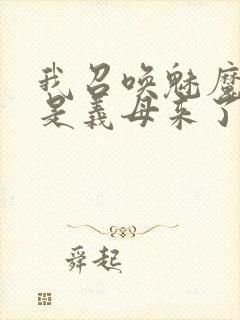 我召唤魅魔
是义母来了
舜起